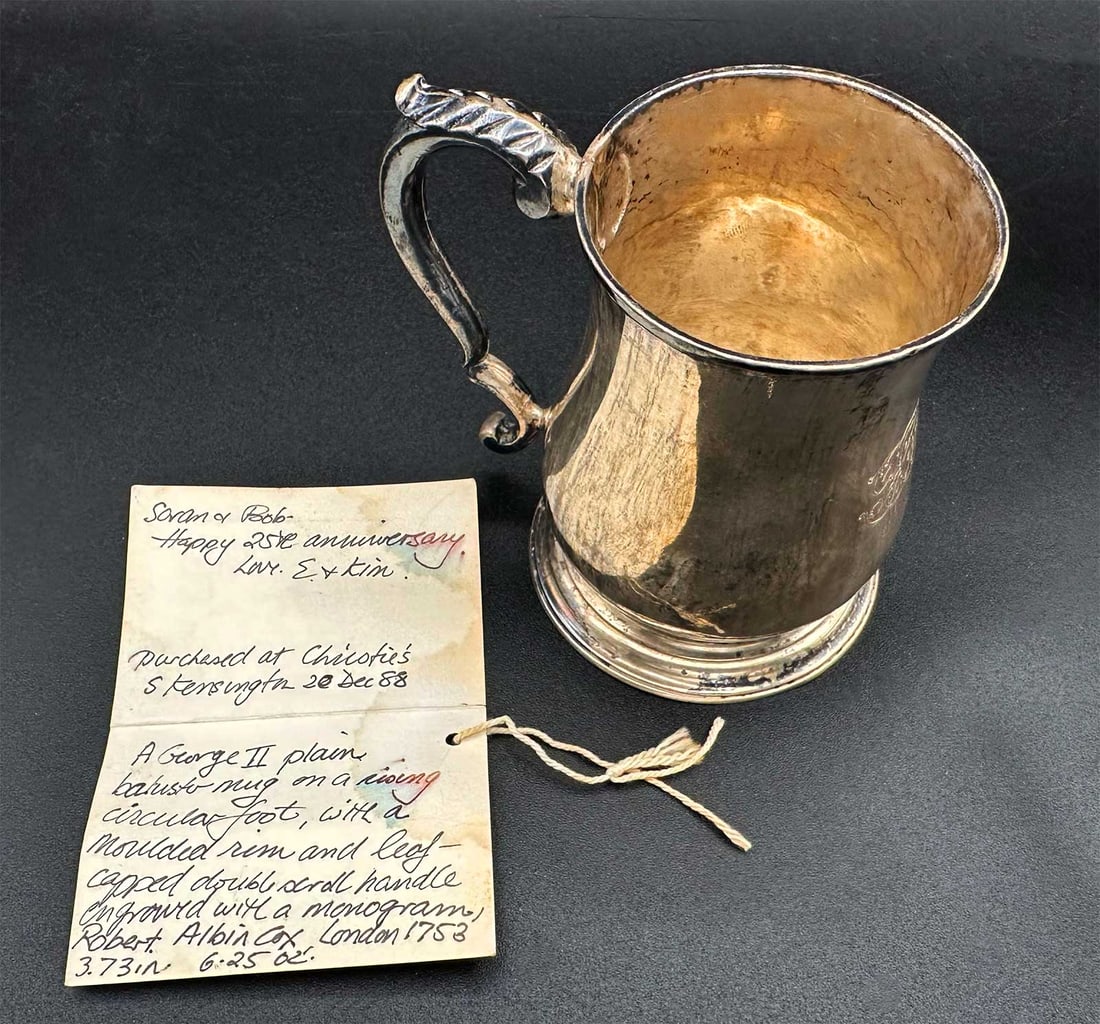 Happy 25th anniversary.
Love. E & Kim.
purchased at Christie's
S Kensington 20 Dec 88
A George II plain
baluster mug on a rising
circular foot, with a
moulded rim and leaf-
capped double scroll handle
engraved with a monogram,
Robert Albin Cox, London 1753
3.73in. 6.25 oz.